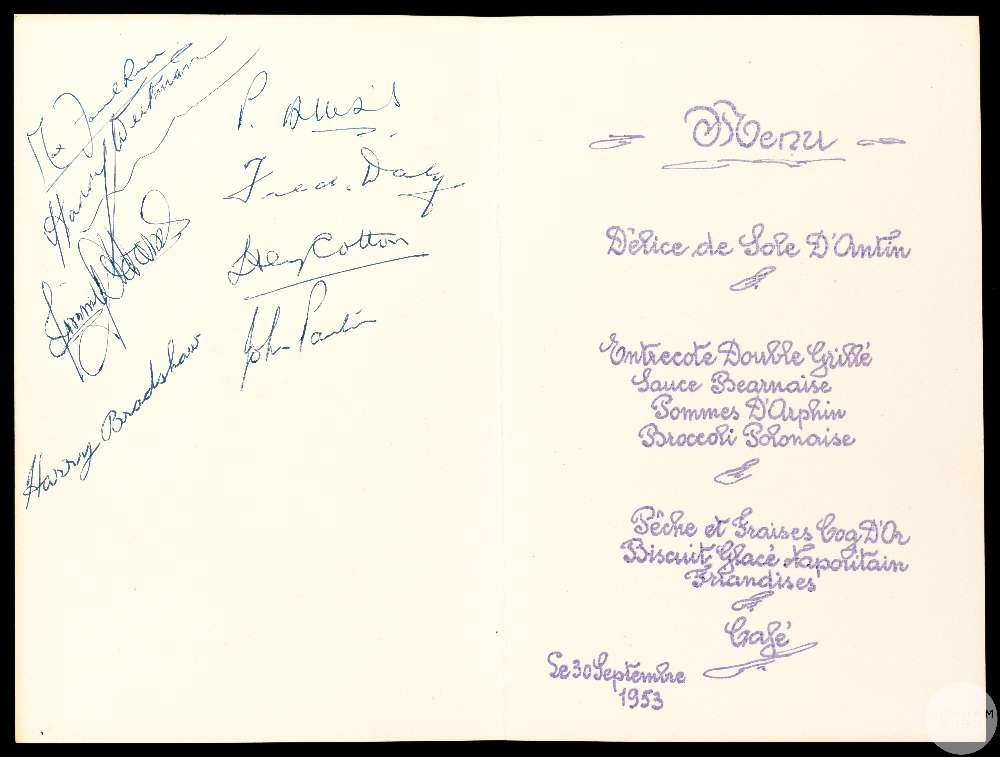 Max Faulkner
Harry Weetman
Jimmy Adams
Harry Bradshaw
P. Alliss
Fred. Daly
Hy Cotton
John Panton
Menu
Délice de Sole D'Antin
Entrecote Double Grillé
Sauce Bearnaise
Pommes D'Arphin
Broccoli Polonaise
Pêche et Fraises Coq D'Or
Biscuit Glacé Napolitain
Friandises
Café
Le 30 Septembre
1953